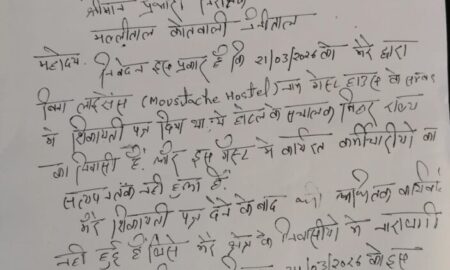 श्रीमान प्रभारी निरीक्षक
मल्लीताल कोतवाली नैनीताल
महोदय,
निवेदन इस प्रकार है कि 21/03/2026 को मेरे द्वारा
बिना लाइसेंस (Moustache Hostel) नाम गेस्ट हाउस के
में शिकायती पत्र दिया था, ये होटल के संचालक राज्य
का निवासी है, और इस गेस्ट में कार्यरत कर्मचारीयो का
सत्यापन तक नहीं हुआ है,
मेरे शिकायती पत्र देने के बाद भी
नहीं हुई है जिसे मेरे क्षेत्र के निवासीयो में नाराजगी
21/03/2026 को इस